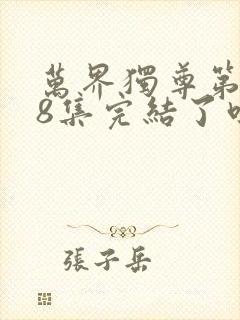 萬界獨尊第
8集完結了
張子岳